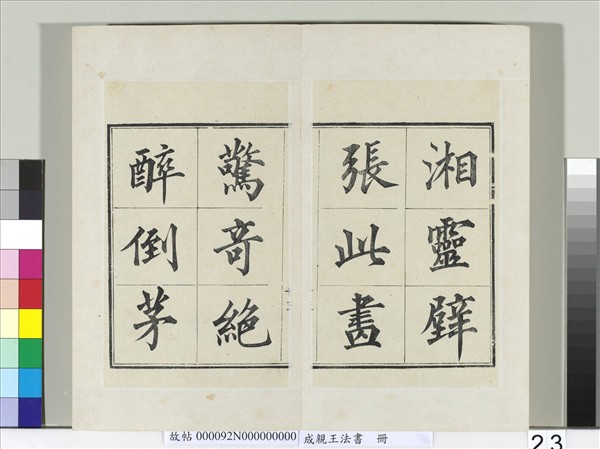 湘靈壁
張此畫
驚竒絕
醉倒茅
故帖 000092N000000000 成親王法書 冊
23